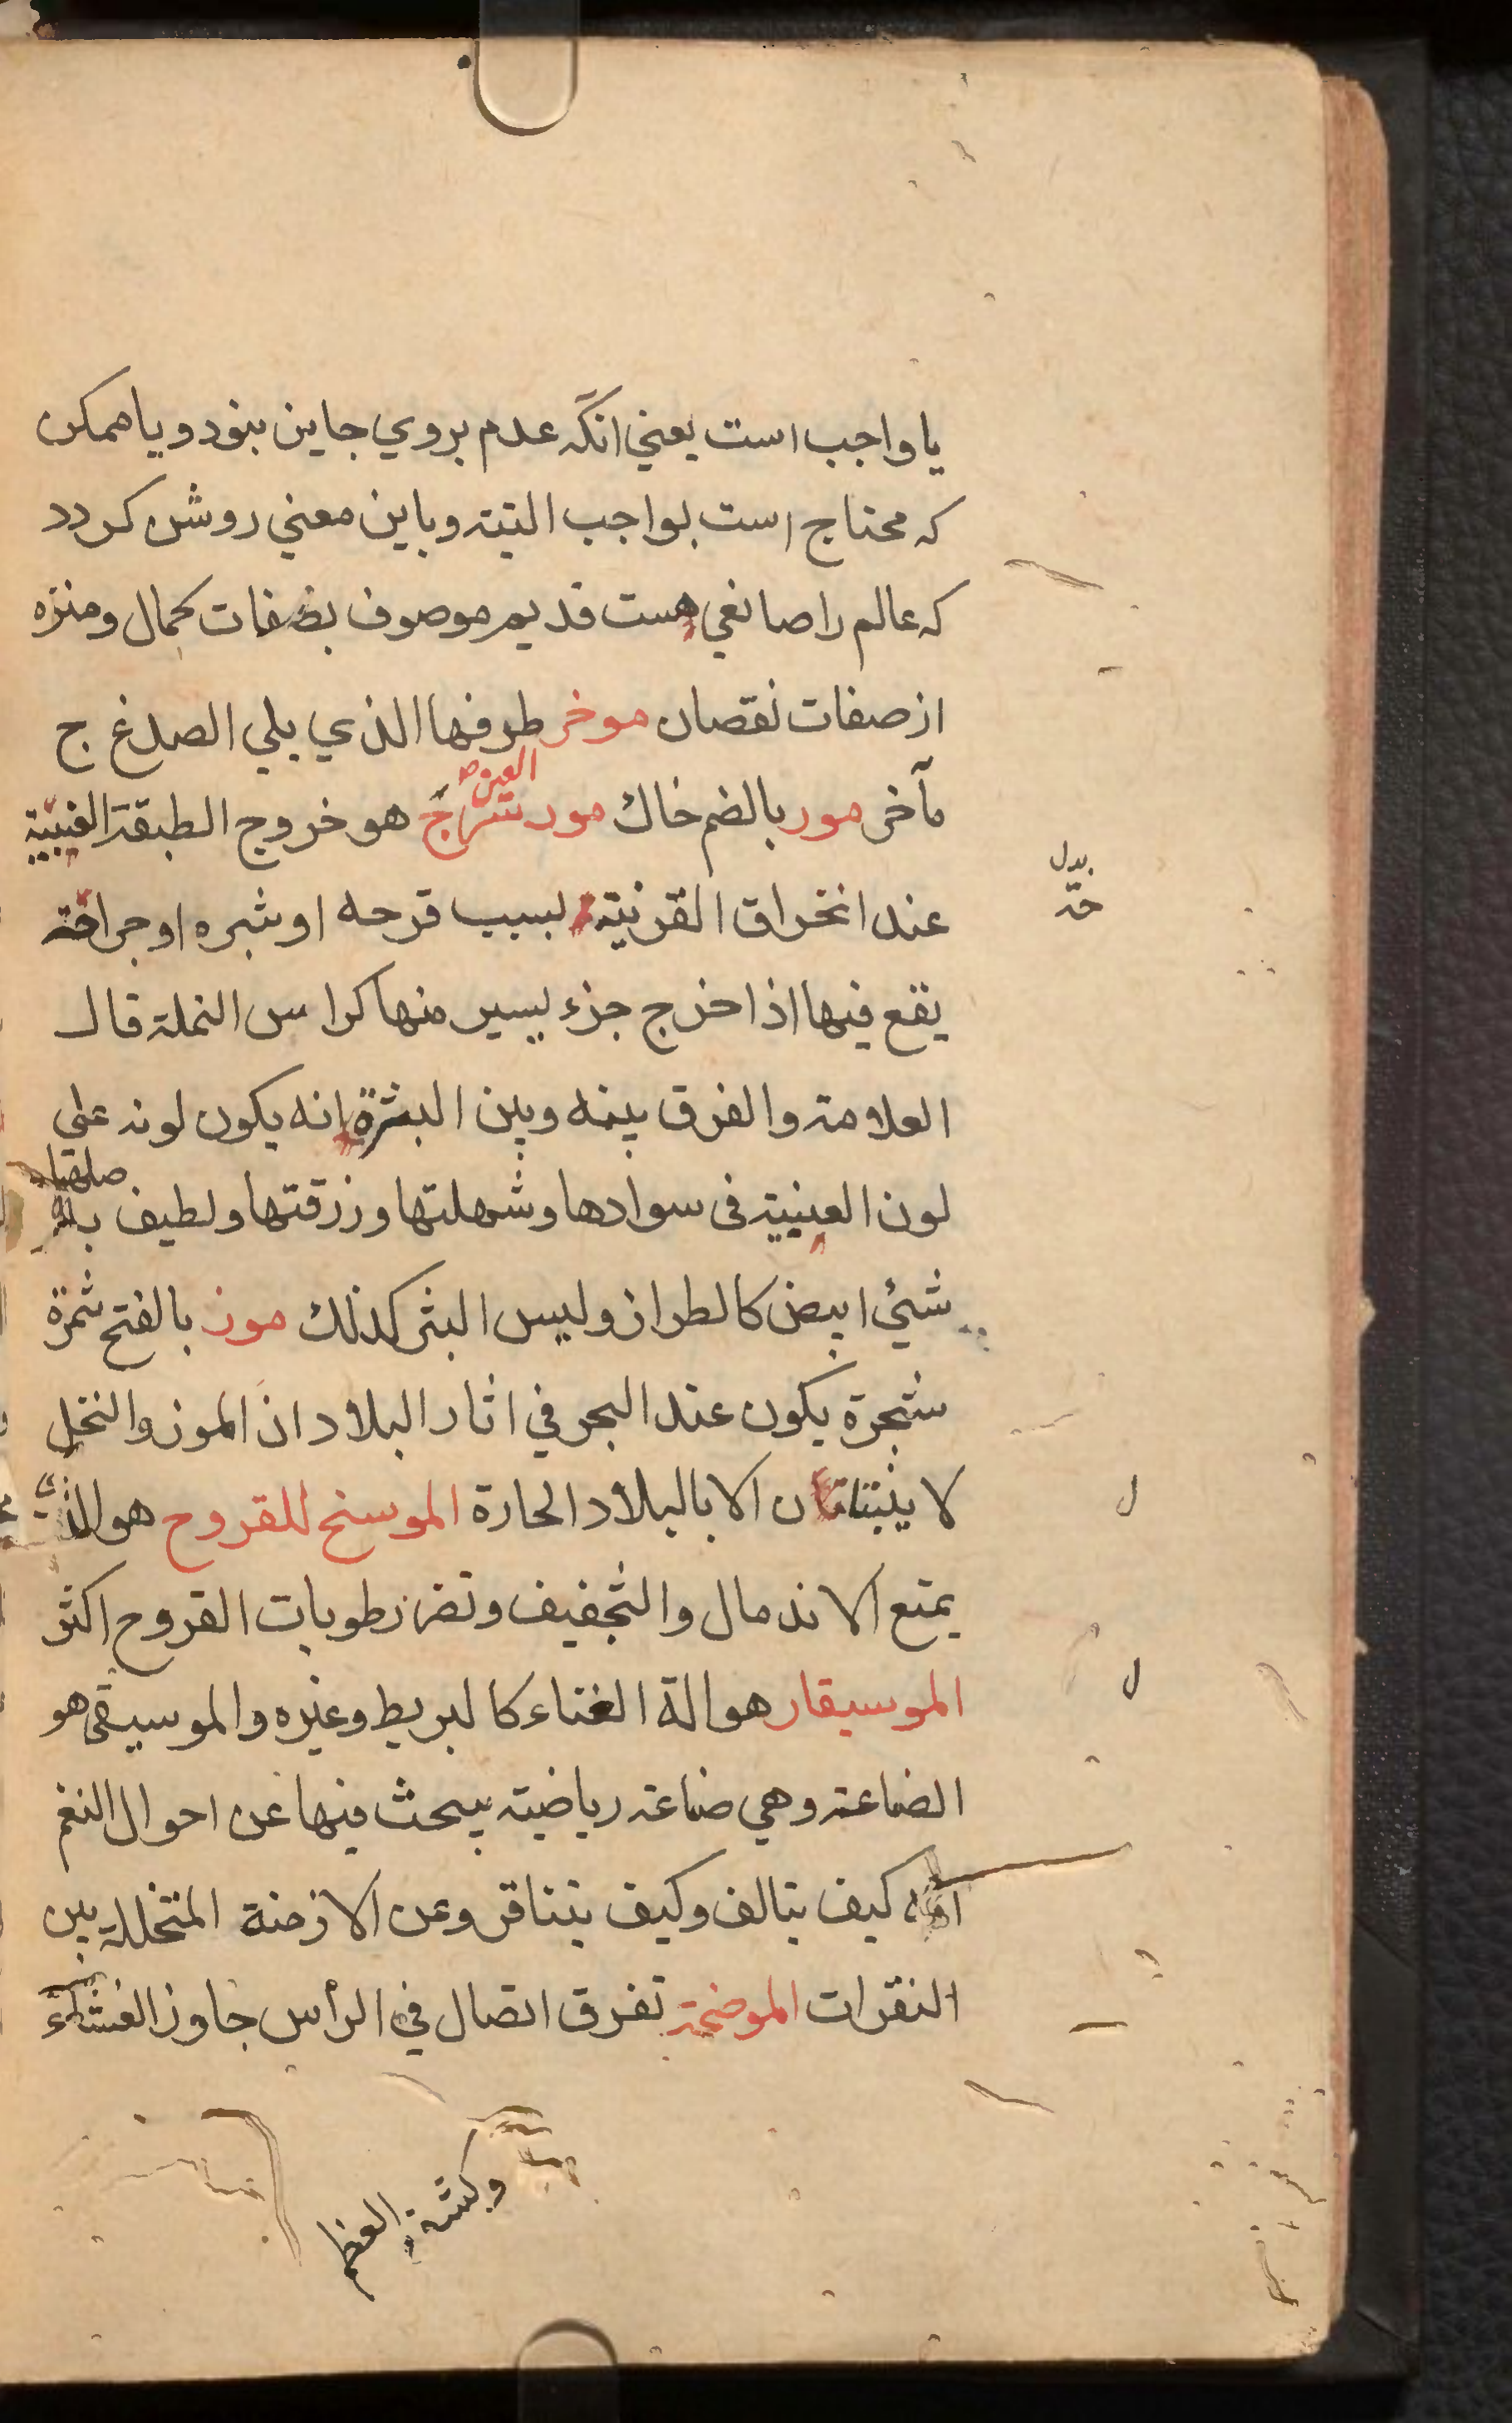 يا واجب است يعني انكه عدم بروي جاين بنود و يا ممكن
كه محتاج است بواجب البتة و باين معني روشن كردد
كه عالم را صانعي هست قديم موصوف بصفات كمال و منزه
از صفات نقصان موخر العين طرفها الذي يلي الصدغ ج
مآخر مور بالضم خاك مور سرج هو خروج الطبقة العنبية
عند انخراق القرنية لسبب قرحه او شبره او جراحة
بدل
يقع فيها اذا خرج جزء يسير منها كراس النملة قال
العلامة والفرق بينه وبين البثرة انه يكون لونه على
لون العنبية في سوادها وشهلتها وزرقتها ولطيف
شيئ ابيض كالطراز وليس البثر كذلك موز بالفتح ثمرة
شجرة يكون عند البحر في اثار البلاد ان الموز والنخل
لا ينبتان الا بالبلاد الحارة الموسخ للقروح هو الذي
يمنع الاندمال والتجفيف وتضر رطوبات القروح اكثر
الموسيقار هو الة الغناء كالبربط وغيره والموسيقي هو
الصناعة وهي صناعة رياضية يبحث فيها عن احوال النغم
كيف يتالف وكيف يتنافر وعن الازمنة المتخللة بين
النقرات الموضحة تفرق اتصال في الرأس جاوز الغشاء
وكشفة العظم